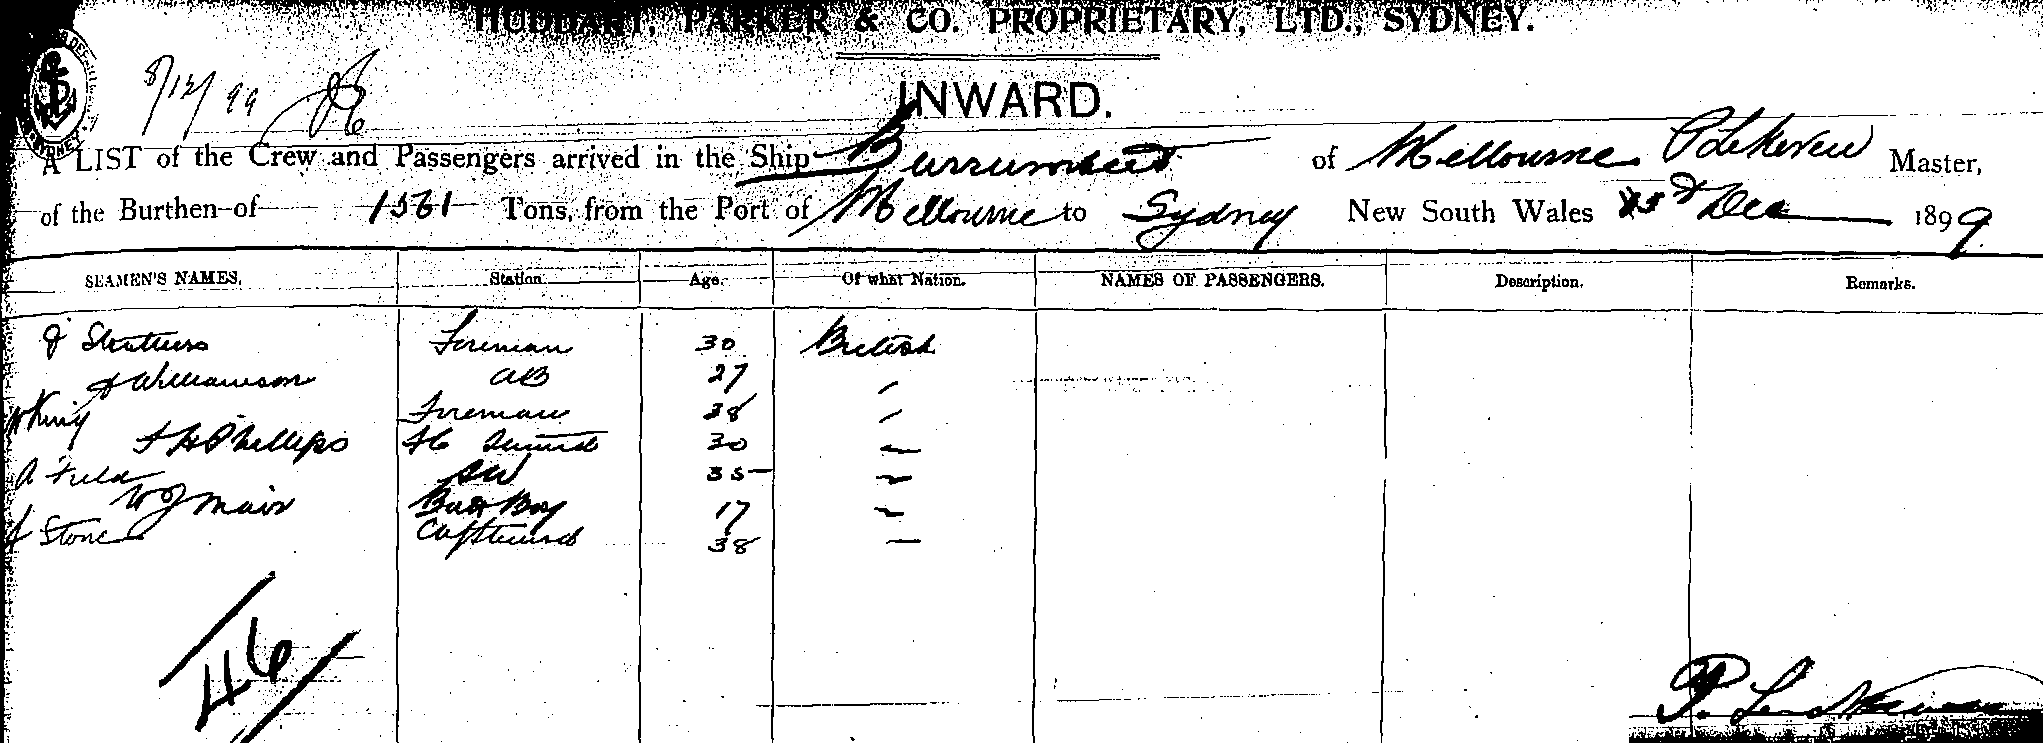 HUDDART, PARKER & CO. PROPRIETARY, LTD., SYDNEY.
8/12/99
INWARD.
A LIST of the Crew and Passengers arrived in the Ship Burrumbeet of Melbourne Master,
of the Burthen of 1561 Tons, from the Port of Melbourne to Sydney New South Wales Dec 1899
SEAMEN'S NAMES. Station. Age. Of what Nation. NAMES OF PASSENGERS. Description. Remarks.
J Struthers Foreman 30 British
Williamson AB 27 "
W King Foreman 38 "
F H Phillips 30 "
A Field 35 "
W J Mair Boy 17 "
J Stone 38 "
46